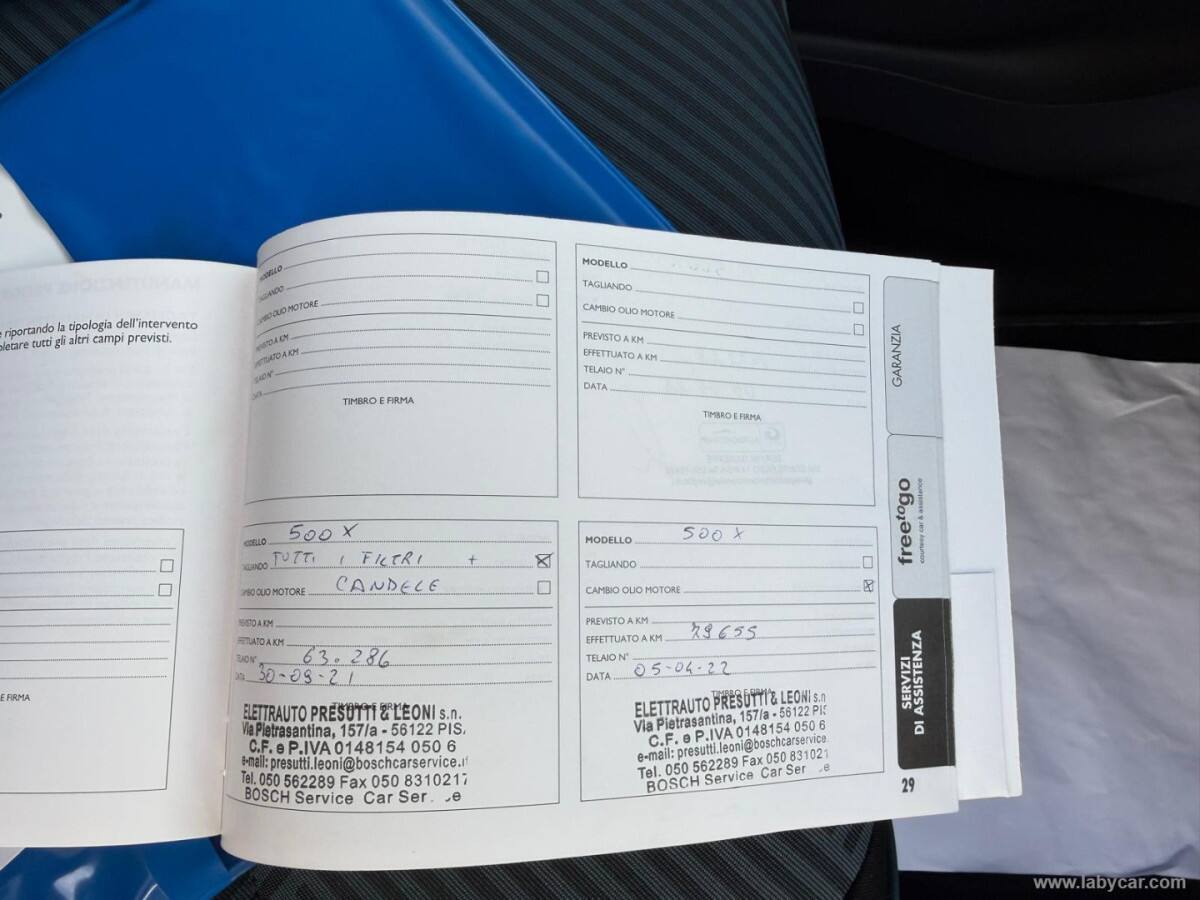 e riportando la tipologia dell'intervento
pletare tutti gli altri campi previsti.
E FIRMA
MODELLO
TAGLIANDO
CAMBIO OLIO MOTORE
PREVISTO A KM
EFFETTUATO A KM
TELAIO N°
DATA
TIMBRO E FIRMA
MODELLO
TAGLIANDO
CAMBIO OLIO MOTORE
PREVISTO A KM
EFFETTUATO A KM
TELAIO N°
DATA
TIMBRO E FIRMA
MODELLO 500 X
TAGLIANDO TUTTI I FILTRI +
CAMBIO OLIO MOTORE CANDELE
PREVISTO A KM
EFFETTUATO A KM
TELAIO N° 63.286
DATA 30-09-21
TIMBRO E FIRMA
ELETTRAUTO PRESUTTI & LEONI s.n.
Via Pietrasantina, 157/a - 56122 PIS
C.F. e P.IVA 0148154 050 6
e-mail: presutti.leoni@boschcarservice.i
Tel. 050 562289 Fax 050 8310217
BOSCH Service Car Ser e
MODELLO 500 X
TAGLIANDO
CAMBIO OLIO MOTORE
PREVISTO A KM
EFFETTUATO A KM 79655
TELAIO N°
DATA 05-04-22
TIMBRO E FIRMA
ELETTRAUTO PRESUTTI & LEONI s.n
Via Pietrasantina, 157/a - 56122 PIS
C.F. e P.IVA 0148154 050 6
e-mail: presutti.leoni@boschcarservice
Tel. 050 562289 Fax 050 831021
BOSCH Service Car Ser e
GARANZIA
freetogo
courtesy car & assistance
SERVIZI
DI ASSISTENZA
29
www.labycar.com